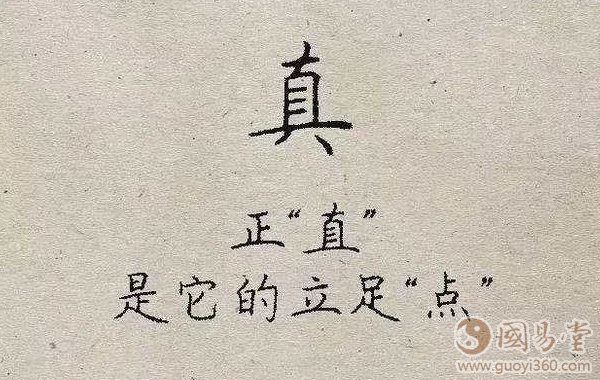 真
正“直”
是它的立足“点”
國易堂
www.guoyi360.com